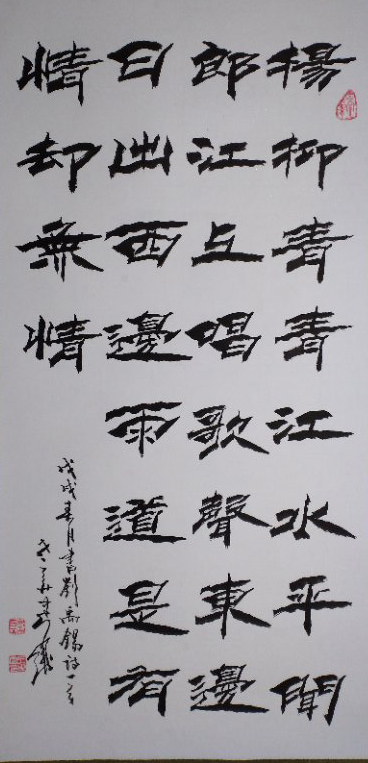 楊柳青青江水平聞
郎江上唱歌聲東邊
日出西邊雨道是有
情却無情
戊戌春月書劉禹錫詩一首